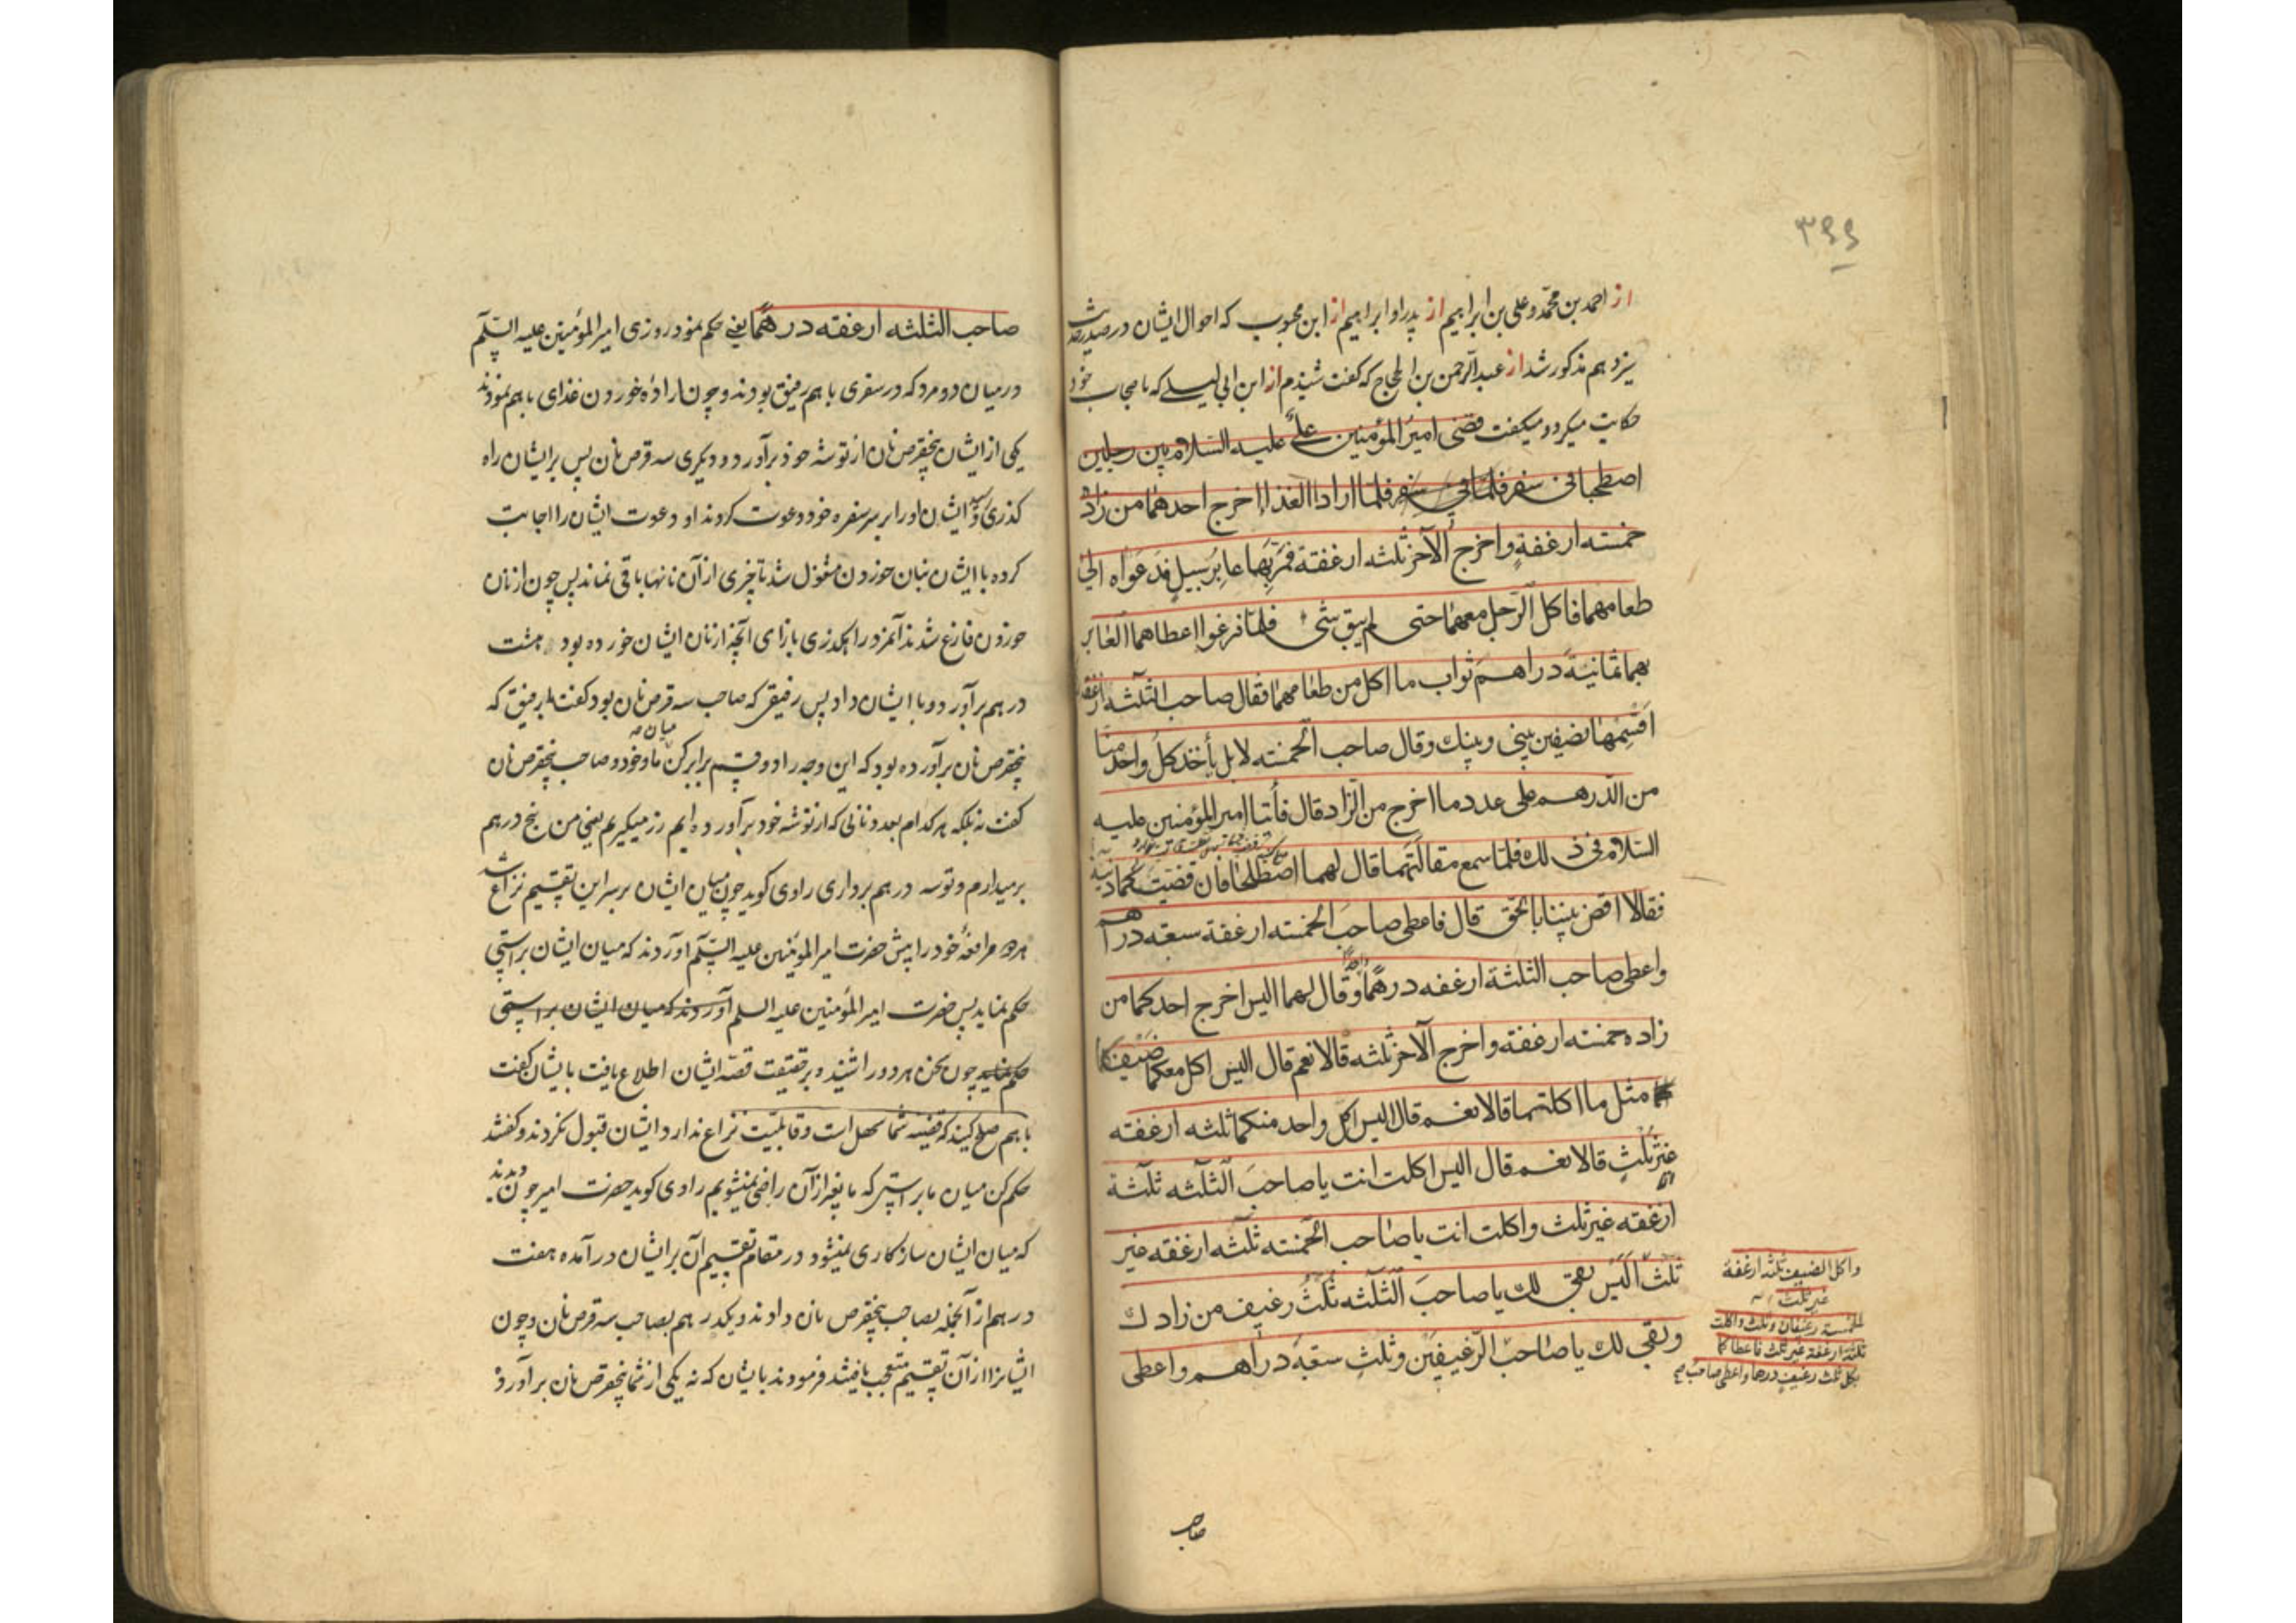 ۳۹۹
از احمد بن محمّد و علی بن ابراهیم از پدر او ابراهیم از ابن محبوب که احوال ایشان در صدر حدیث
سیزدهم مذکور شد از عبد الرّحمن بن الحجاج که گفت شنیدم از ابن ابی لیلے که با صحاب خود
حکایت میکرد و میکفت قضی امیرُ المؤمنین علیٌّ علیه السّلام بین رجلین
اصطحبا فی سفر فلمّا فی سفر فلمّا ارادا الغذا اخرج احدهما من زاده
خمسته ارغفةٍ واخرج الآخر ثلثه ارغفة فمرّ بهما عابرُ سبیلٍ فدعواه الی
طعامهما فاکل الرّجل معهما حتی لم یبق شیء فلمّا فرغوا اعطاهما العابر
بهما ثمانیةَ دراهم ثواب ما اکل من طعامهما فقال صاحب الثلثه ارغفه
اقسِمها نصفین بینی وبینك وقال صاحب الخمسته لا بل یأخذ کلُّ واحد منّا
من الدّرهم علی عدد ما اخرج من الزّاد قال فأتیا امیر المؤمنین علیه
السّلام فی ذلك فلمّا سمع مقالتهما قال لهما اصطلحا فان قضیّتکما دنیّة
فقالا اقض بیننا بالحقّ قال فاعطی صاحبَ الخمسته ارغفة سبعه دراهم
واعطی صاحب الثلثة ارغفه درهمًا وقال لهما الیس اخرج احدکما من
زاده خمسته ارغفة واخرج الآخر ثلثه قالا نعم قال الیس اکل معکما ضیفکما
مثل ما اکلتما قالا نعم قال الیس اکل واحد منکما ثلثه ارغفته
غیر ثلثٍ قالا نعم قال الیس اکلت انت یا صاحبَ الثلثه ثلثة
ارغفته غیر ثلث واکلت انت یا صاحب الخمسته ثلثه ارغفه غیر
ثلث الَیْس بقی لك یا صاحبَ الثلثه ثُلثُ رغیف من زادك
وبقی لك یا صاحبَ الرّغیفین وثلثٍ سبعهَ دراهم واعطی
واکل الضیف ثلثه ارغفة
غیر ثلث
الخمسة رغیفان وثلث واکلت
ثلثه ارغفة غیر ثلث فاعطاکما
بکل ثلث رغیف درهما واعطی صاحب صح
صاحب
صاحب الثلثه ارغفته درهمًا یعنے حکم نمود روزی امیر المؤمنین علیه السّلم
در میان دو مرد که در سفری با هم رفیق بودند و چون اراده خوردن غذای با هم نمودند
یکی از ایشان پنجقرص نان از توشه خود برآورد و دیکری سه قرص نان پس بر ایشان راه
کذری ایشان او را بر سر سفره خود دعوت کردند او دعوت ایشان را اجابت
کرده با ایشان بنان خوردن مشغول شد تا چیزی از آن نانها باقی نماند پس چون از نان
خوردن فارغ شدند آنمرد راهکذری بازای آنچه از نان ایشان خورده بود هشت
درهم برآورد و با ایشان داد پس رفیقی که صاحب سه قرص نان بود کفت بر فیق که
پنجقرص نان برآورده بود که این وجه را دو قسم برابر کن میان ما و خود و صاحب پنجقرص نان
کفت نه بلکه هر کدام بعدد نانی که از توشه خود برآورده ایم زر میکیریم یعنی من پنج درهم
برمیدارم و تو سه درهم برداری راوی کوید چون میان ایشان بر سر این تقسیم نزاع شد
هر دو مرافعهٔ خود را پیش حضرت امیر المؤمنین علیه السّلم آوردند که میان ایشان براستی
حکم نماید پس حضرت امیر المؤمنین علیه السلم آوردند که میان ایشان براستی
حکم نماید چون سخن هر دو را شنید و بر حقیقت قصّه ایشان اطلاع یافت بایشان کفت
با هم صلح کنید که قضیه شما سهل است و قابلیت نزاع ندارد ایشان قبول نکردند و کفتند
حکم کن میان ما براستی که ما بغیر از آن راضی نمیشویم راوی کوید حضرت امیر چون دیدند
که میان ایشان سازکاری نمیشود در مقام تقسیم آن بر ایشان درآمده هفت
درهم از آنجمله بصاحب پنجقرص نان دادند و یکدرهم بصاحب سه قرص نان و چون
ایشانرا از آن تقسیم متعجب یافتند فرمودند بایشان که نه یکی از شما پنجقرص نان برآورد